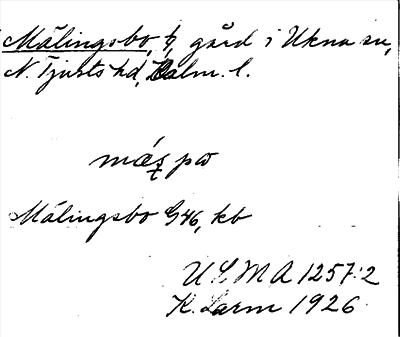 Målingsbo, b, gård i Ukna sn,
N. Tjusts hd, Kalm. l.
Målingsbo G46, kb
ULMA 1257:2
K. Larm 1926